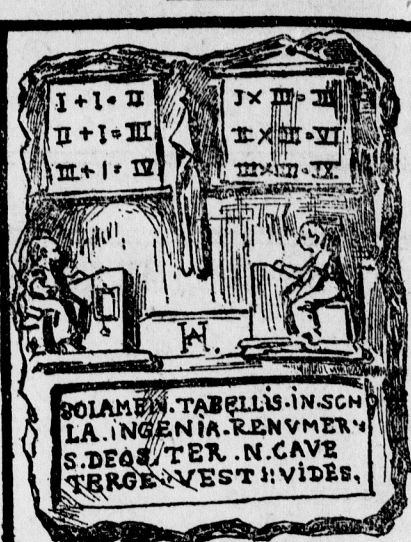 I + I = II
II + I = III
III + I = IV
I X III = III
II X III = VI
III X III = IX
HA
SOLAMEN.TABELLIS.IN.SCHO
LA.INGENIA.RENVMER
S.DEOS TER.N.CAVE
TERGE VEST VIDES.